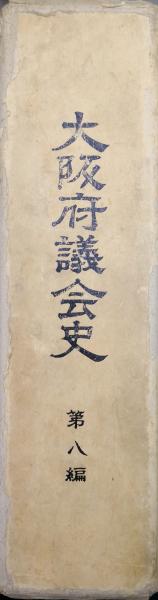 大阪府議会史
第八編